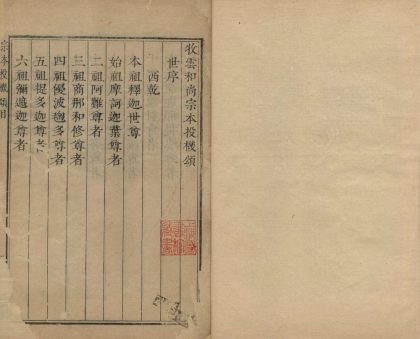 牧雲和尚宗本投機頌
世序
西乾
本祖釋迦世尊
始祖摩訶迦葉尊者
二祖阿難尊者
三祖商那和修尊者
四祖優波毱多尊者
五祖提多迦尊者
六祖彌遮迦尊者
宗本投機頌目